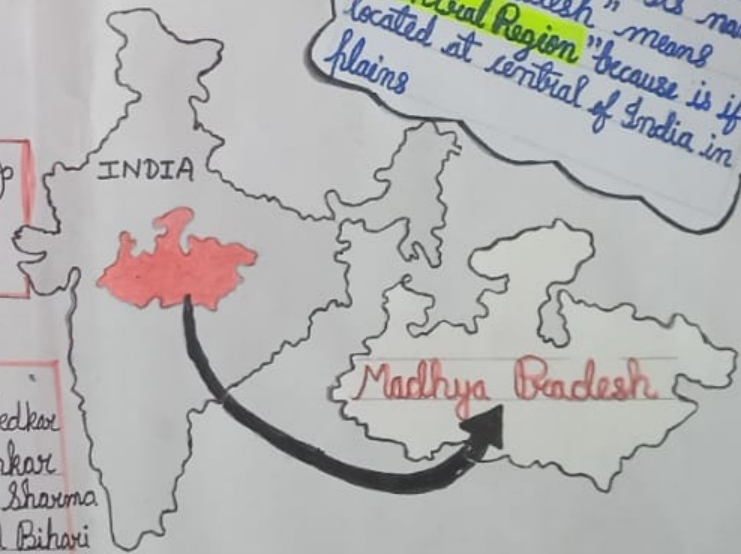 desh" means
Region "because is if
located at central of India in
plains
INDIA
Madhya Pradesh
Sharma
Bihari